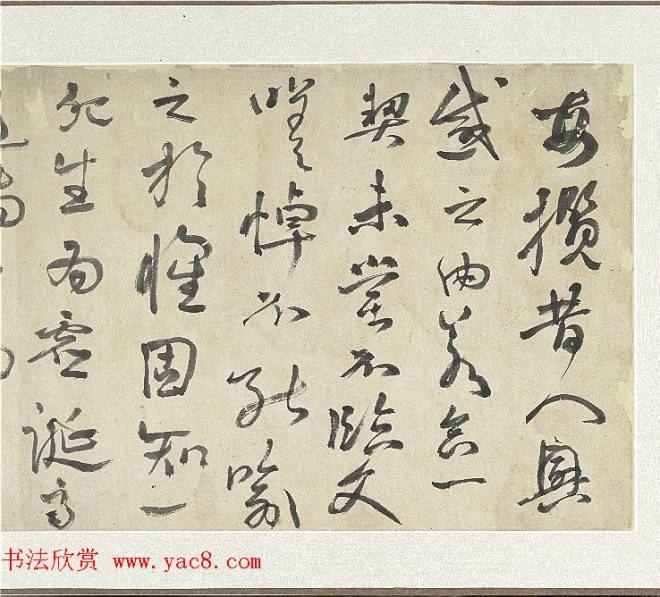 每攬昔人興
感之由若合一
契未嘗不臨文
嗟悼不能喻
之於懷固知一
死生為虛誕齊
书法欣赏 www.yac8.com